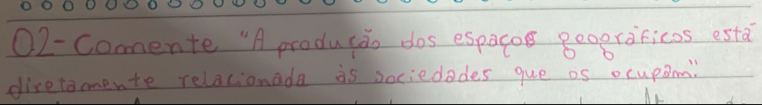 02-Comente "A produção dos espaços geográficos está
diretamente relacionada às sociedades que os ocupam."